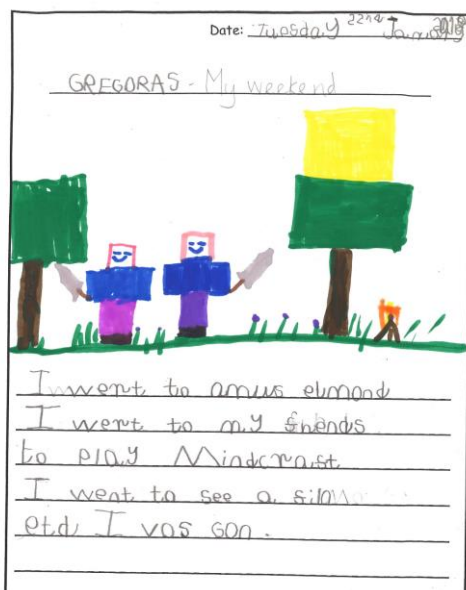 Date: Tuesday 22nd January
GREGORAS - My weekend
I went to amus elmond
I went to my friends
to play Mindcraft
I went to see a film
I vas gon.